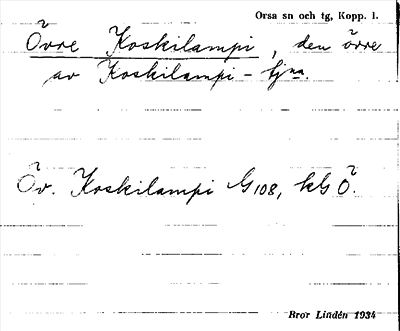 Orsa sn och tg, Kopp. l.
Övre Koskilampi, den övre
av Koskilampi-tjna.
Öv. Koskilampi G108, kG Ö.
Bror Lindén 1934